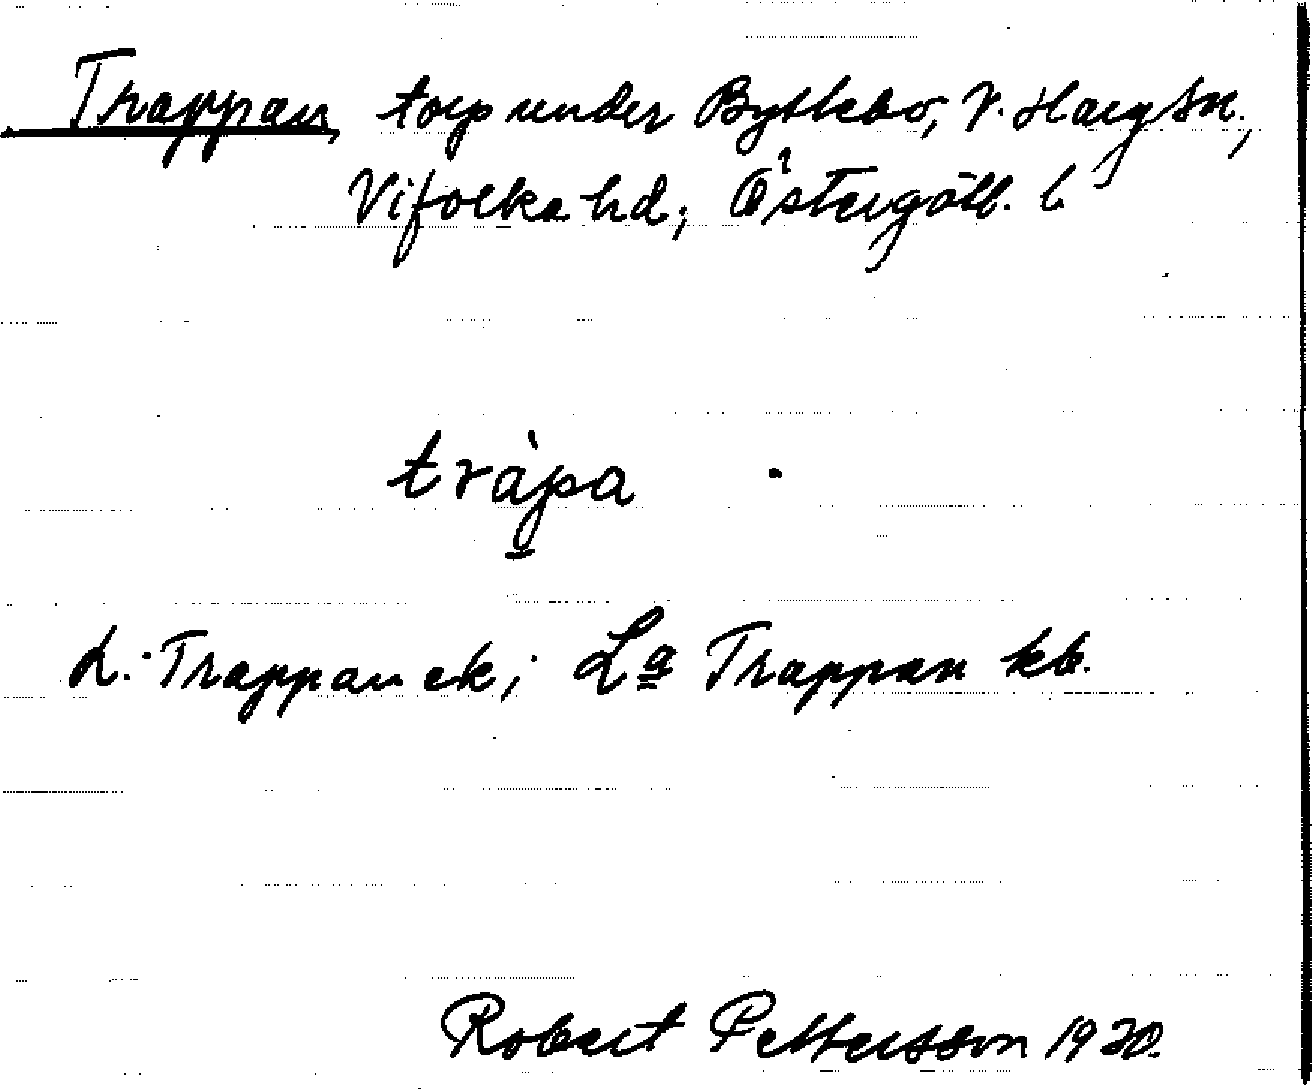 Trappan, torp under Bytlebo, V. Harg sn.,
Vifolka hd, Östergötl. l
tràpa
L. Trappan ek; La Trappan kb.
Robert Pettersson 1930.